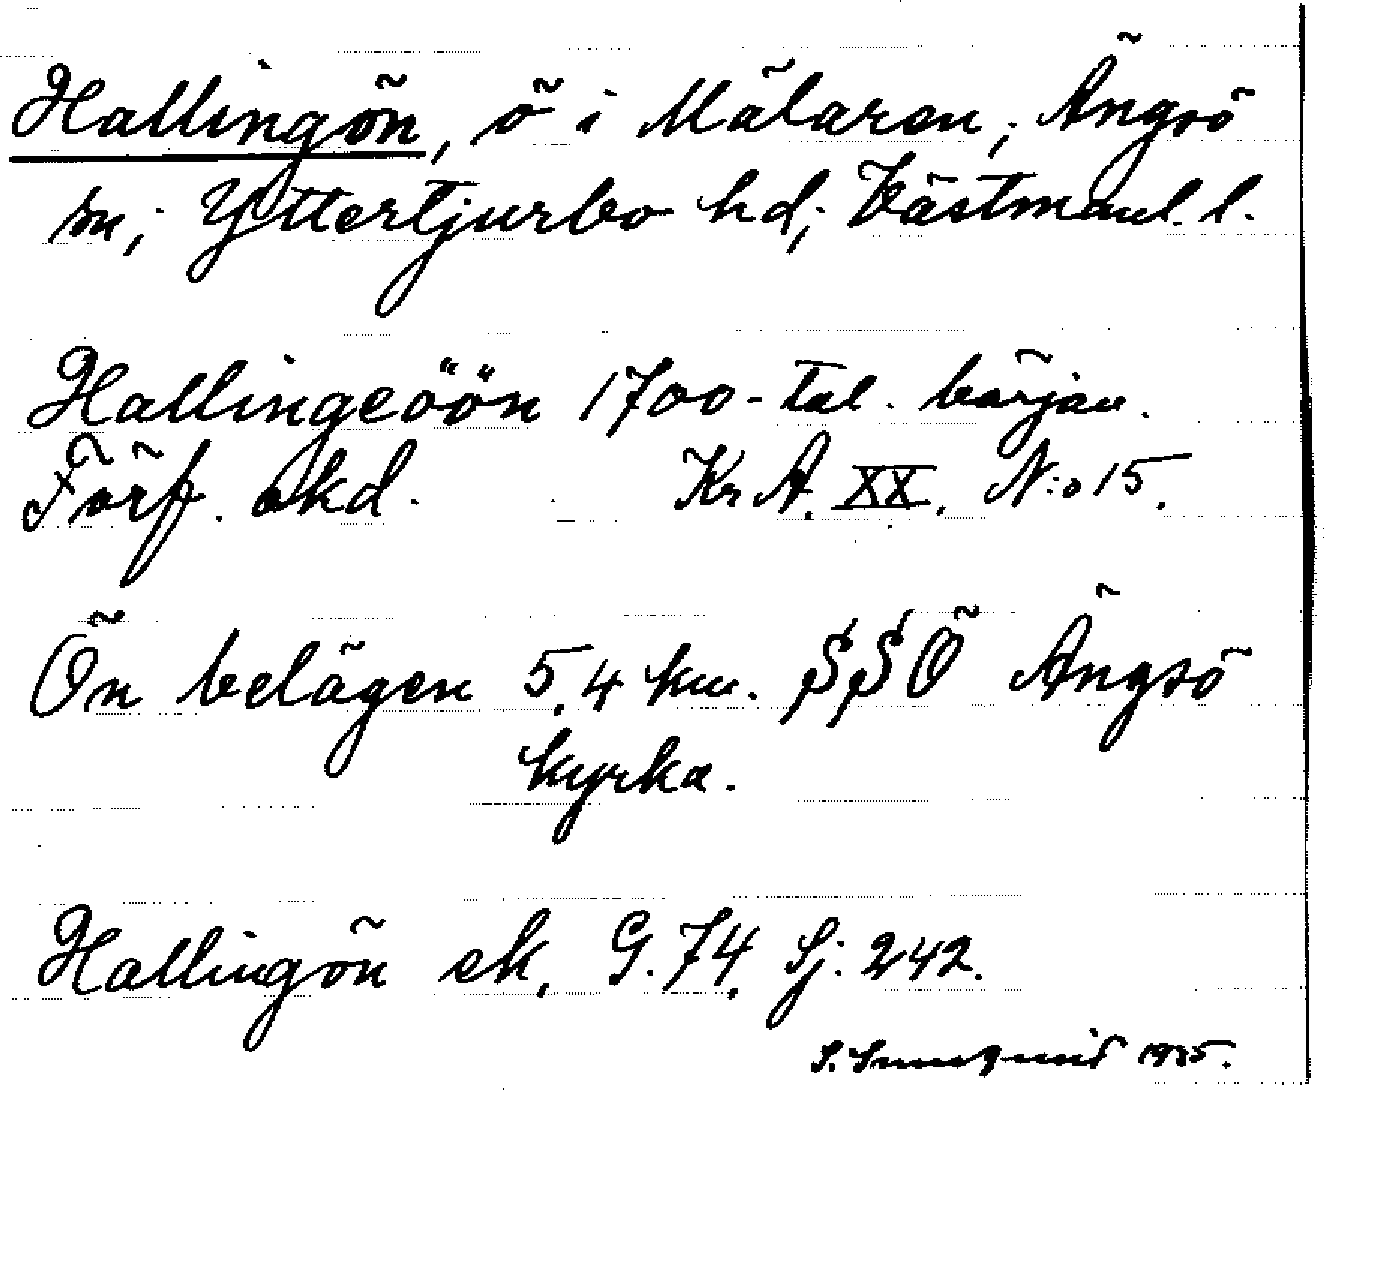 Hallingön, ö i Mälaren, Ängsö
sn, Yttertjurbo hd, Västmanl. l.
Hallingeöön 1700-tal. början.
Förf. okd. Kr. A. XX. N:o 15.
Ön belägen 5,4 km. SSÖ Ängsö
kyrka.
Hallingön ek. G. 74. Sj. 242.
1935.